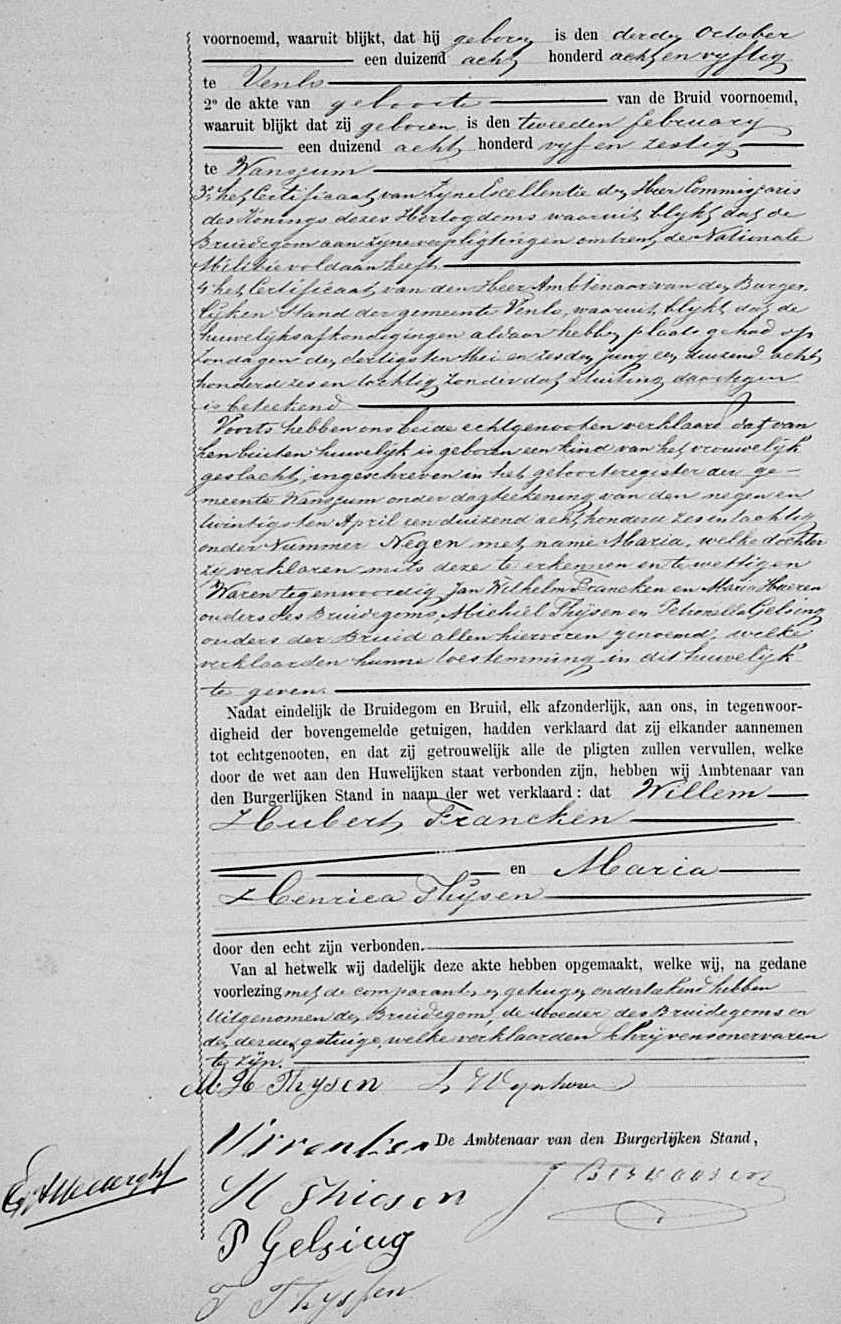 voornoemd, waaruit blijkt, dat hij geboren is den derden October
een duizend acht honderd acht en vyftig
te Venlo
2º de akte van geboorte van de Bruid voornoemd,
waaruit blijkt dat zij geboren is den tweeden february
een duizend acht honderd vyf en zestig
te Wanssum
3º het Certificaat van Zyne Excellentie den Heer Commissaris
des Konings dezes Hertogdoms waaruit blykt dat de
Bruidegom aan zyne verpligtingen omtrent de Nationale
Militie voldaan heeft.
4 het Certificaat van den Heer Ambtenaar van den Burger
lyken Stand der gemeente Venlo, waaruit blykt dat de
huwelyksafkondigingen aldaar hebben plaats gehad op
Zondagen den dertigsten Mei en zesden juny een duizend acht
honderd zes en tachtig zonder dat stuiting daartegen
is beteekend
Voorts hebben ons beide echtgenooten verklaard dat van
hen buiten huwelyk is geboren een kind van het vrouwelyk
geslacht, ingeschreven in het geboorteregister der ge-
meente Wanssum onder dagteekening van den negen en
twintigsten April een duizend acht honderd zes en tachtig
onder Nummer Negen met name Maria, welke dochter
zy verklaren mits deze te erkennen en te wettigen
Waren tegenwoordig Jan Wilhelm Francken en Maria
ouders des Bruidegoms, Michiel Thijsen en Petronella Gelsing
ouders der Bruid allen hiervoren genoemd, welke
verklaarden hunne toestemming in dit huwelyk
te geven.
Nadat eindelijk de Bruidegom en Bruid, elk afzonderlijk, aan ons, in tegenwoor-
digheid der bovengemelde getuigen, hadden verklaard dat zij elkander aannemen
tot echtgenooten, en dat zij getrouwelijk alle de pligten zullen vervullen, welke
door de wet aan den Huwelijken staat verbonden zijn, hebben wij Ambtenaar van
den Burgerlijken Stand in naam der wet verklaard: dat Willem
Hubert Francken
en Maria
Henrica Thijsen
door den echt zijn verbonden.
Van al hetwelk wij dadelijk deze akte hebben opgemaakt, welke wij, na gedane
voorlezing met de comparanten en getuigen onderteekend hebben
Uitgenomen den Bruidegom, de Moeder des Bruidegoms en
den derden getuige, welke verklaarden schryvens onervaren
te zyn.
M. H Thysen
De Ambtenaar van den Burgerlijken Stand,
M Thiesen
P Gelsing
T Thyssen